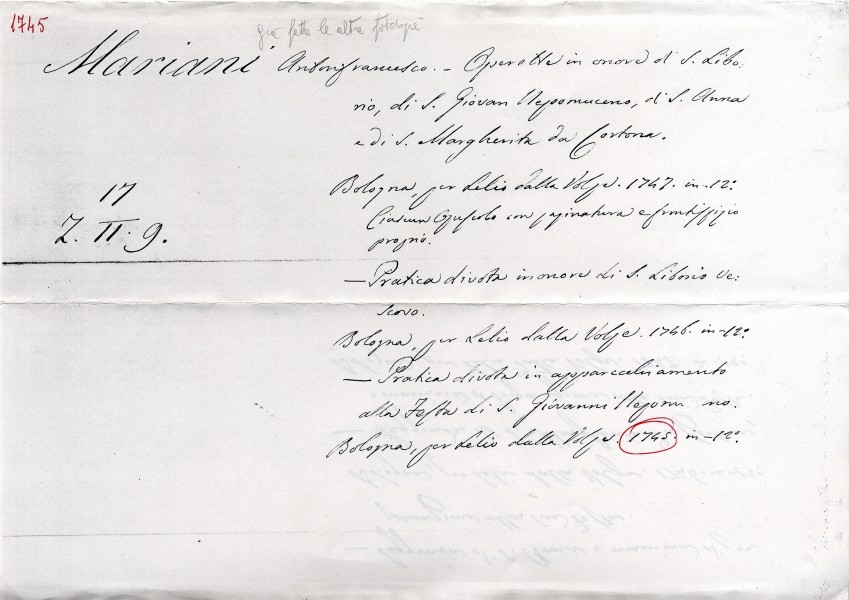 1745
già fatte le altre fotocopie
Mariani Antonfrancesco. – Operette in onore di S. Libo-
rio, di S. Giovan Nepomuceno, di S. Anna
e di S. Margherita da Cortona.
17
Z. II. 9.
Bologna, per Lelio dalla Volpe. 1747. in-12°
Ciascun Opuscolo con paginatura e frontispizio
proprio.
— Pratica divota in onore di S. Liborio Ve-
scovo.
Bologna, per Lelio dalla Volpe. 1746. in-12°
— Pratica divota in apparecchiamento
alla Festa di S. Giovanni Nepomu no.
Bologna, per Lelio dalla Volpe. 1745. in-12°